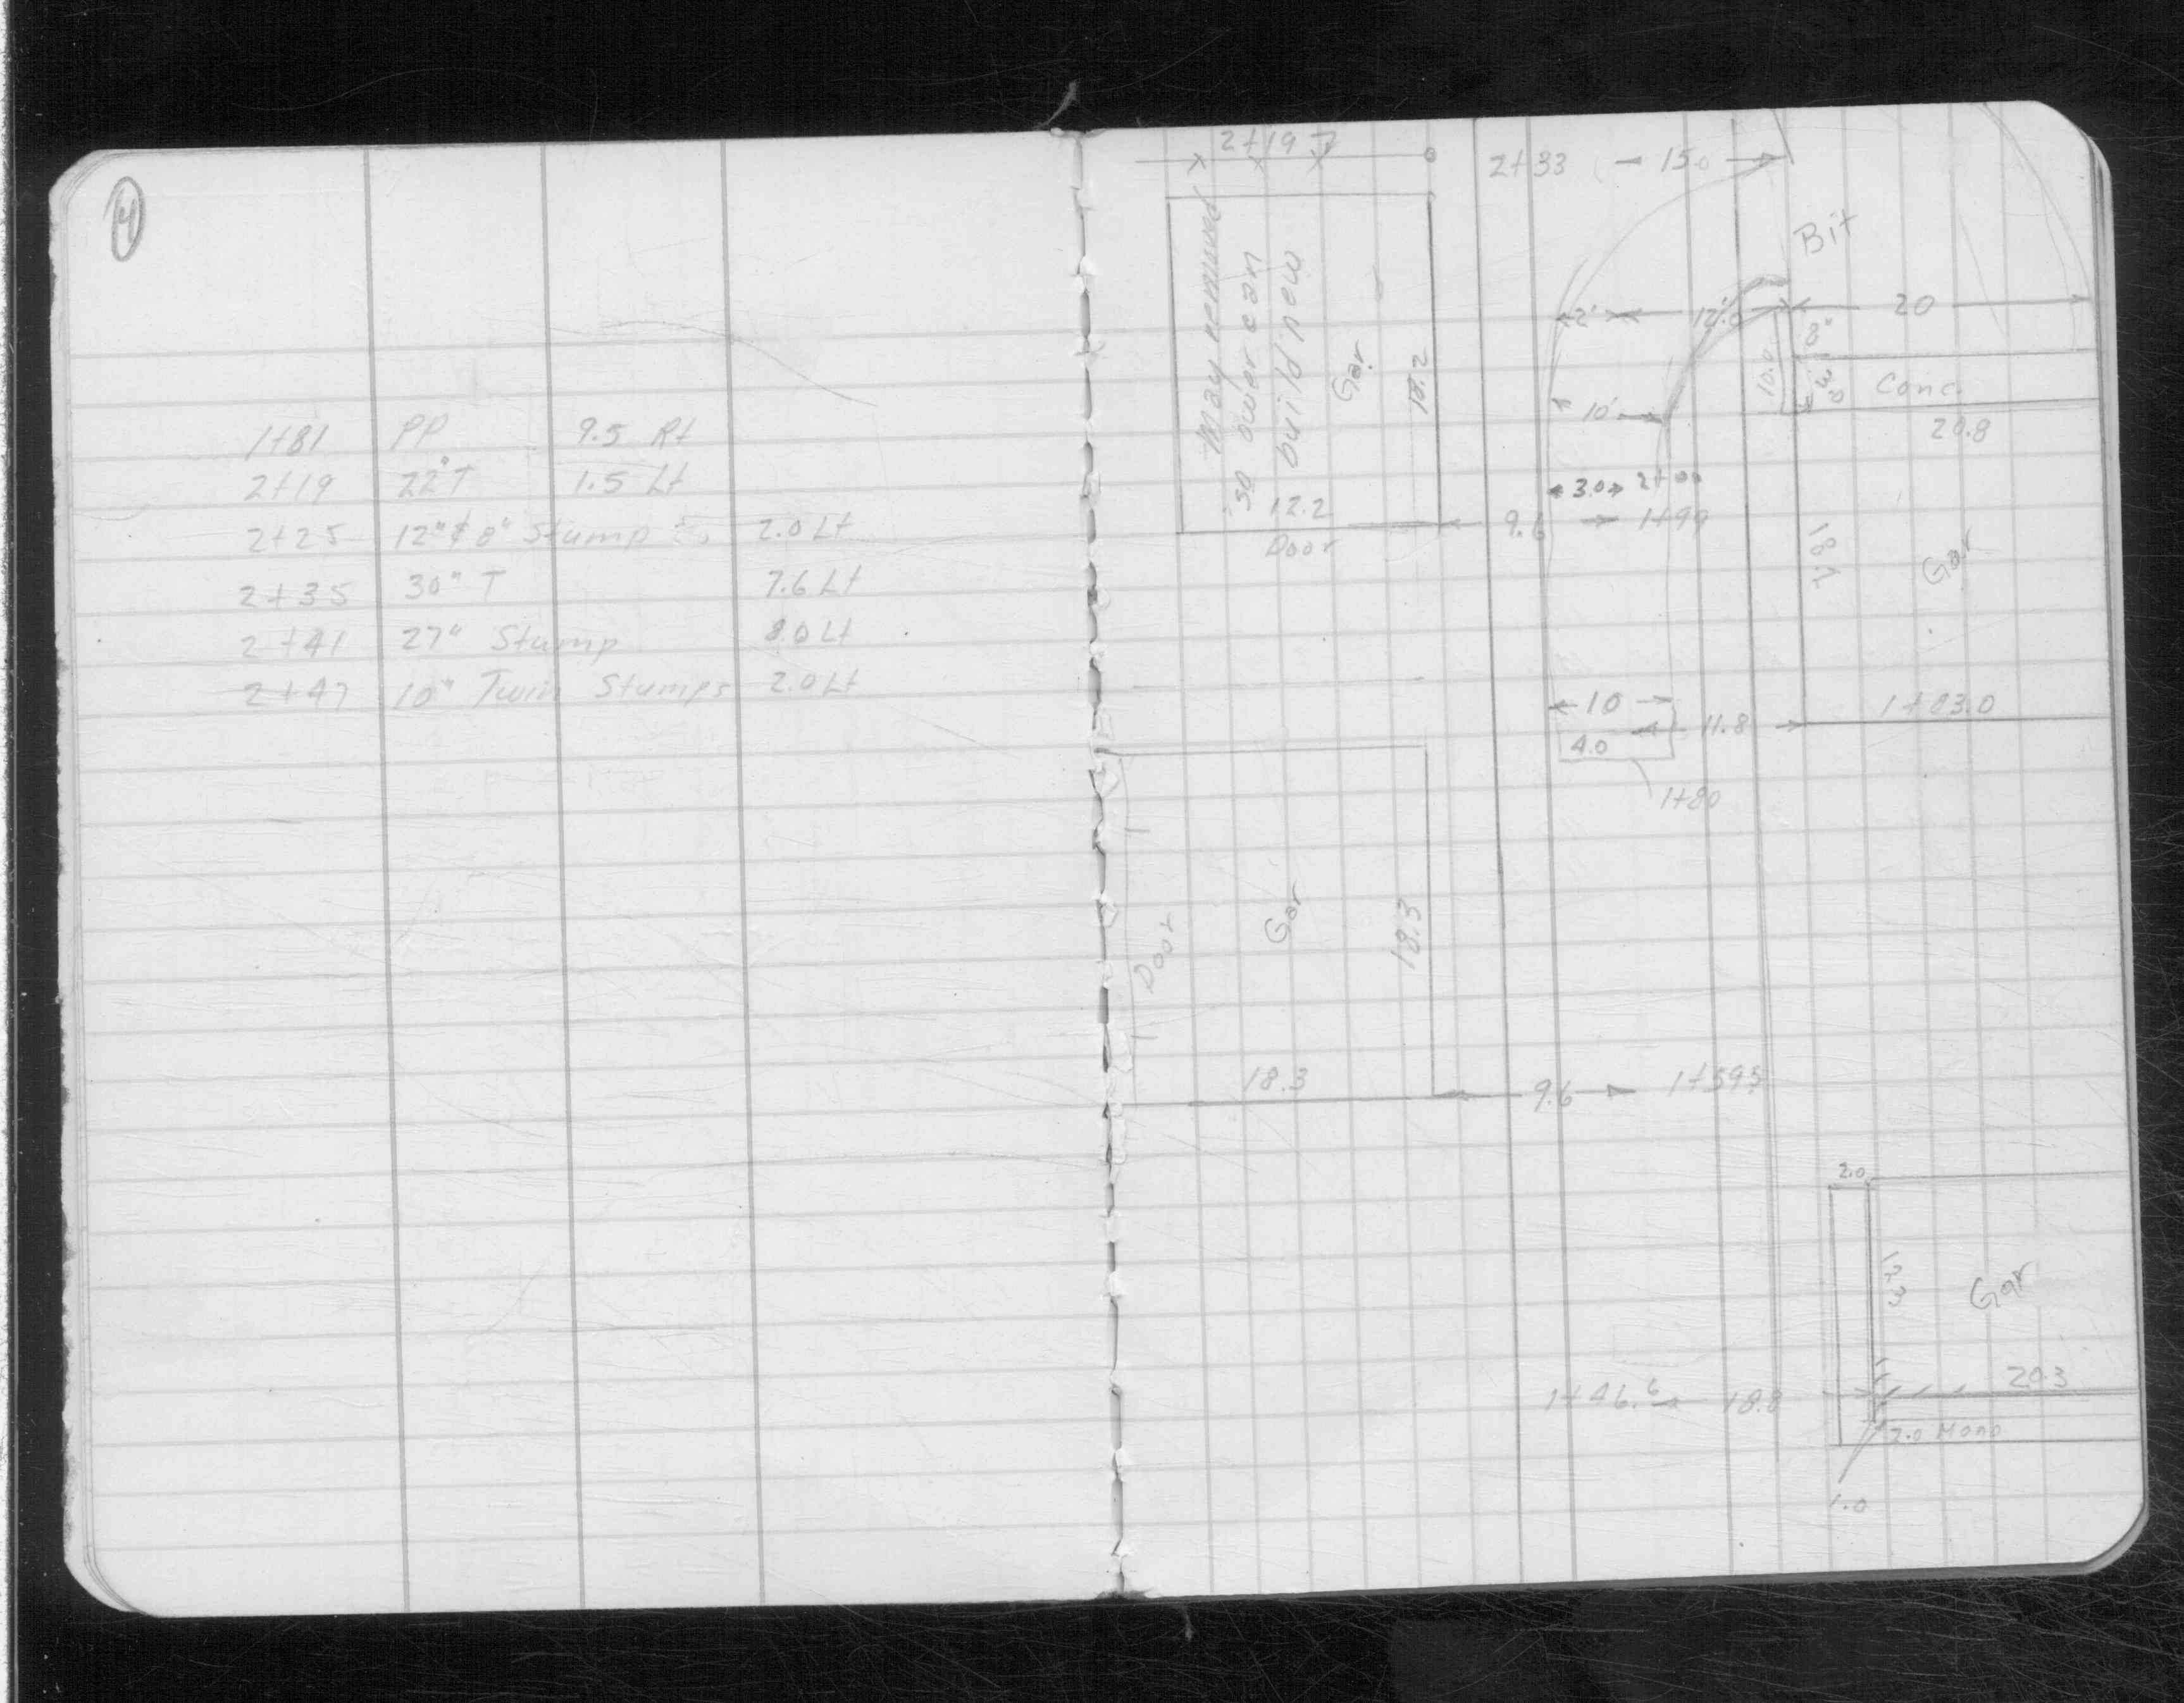 4
1+81 PP 9.5 Rt
2+19 22" T 1.5 Lt
2+25 12" & 8" Stump 2.0 Lt
2+35 30" T 7.6 Lt
2+41 27" Stump 8.0 Lt
2+47 10" Twin Stumps 2.0 Lt
2+19
2+33 15.0
May removed
so owner can
build new
Gar
18.2
12.2
Door
Bit
2' 12' 20
10.0
Conc.
10'
20.8
3.0 2+00
9.6 1+99
Gar
10
1+83.0
11.8
4.0
1+80
Door
Gar
18.3
18.3
9.6 1+59.5
2.0
12.3
Gar
20.3
1+46.6 18.8
2.0 Mono
1.0